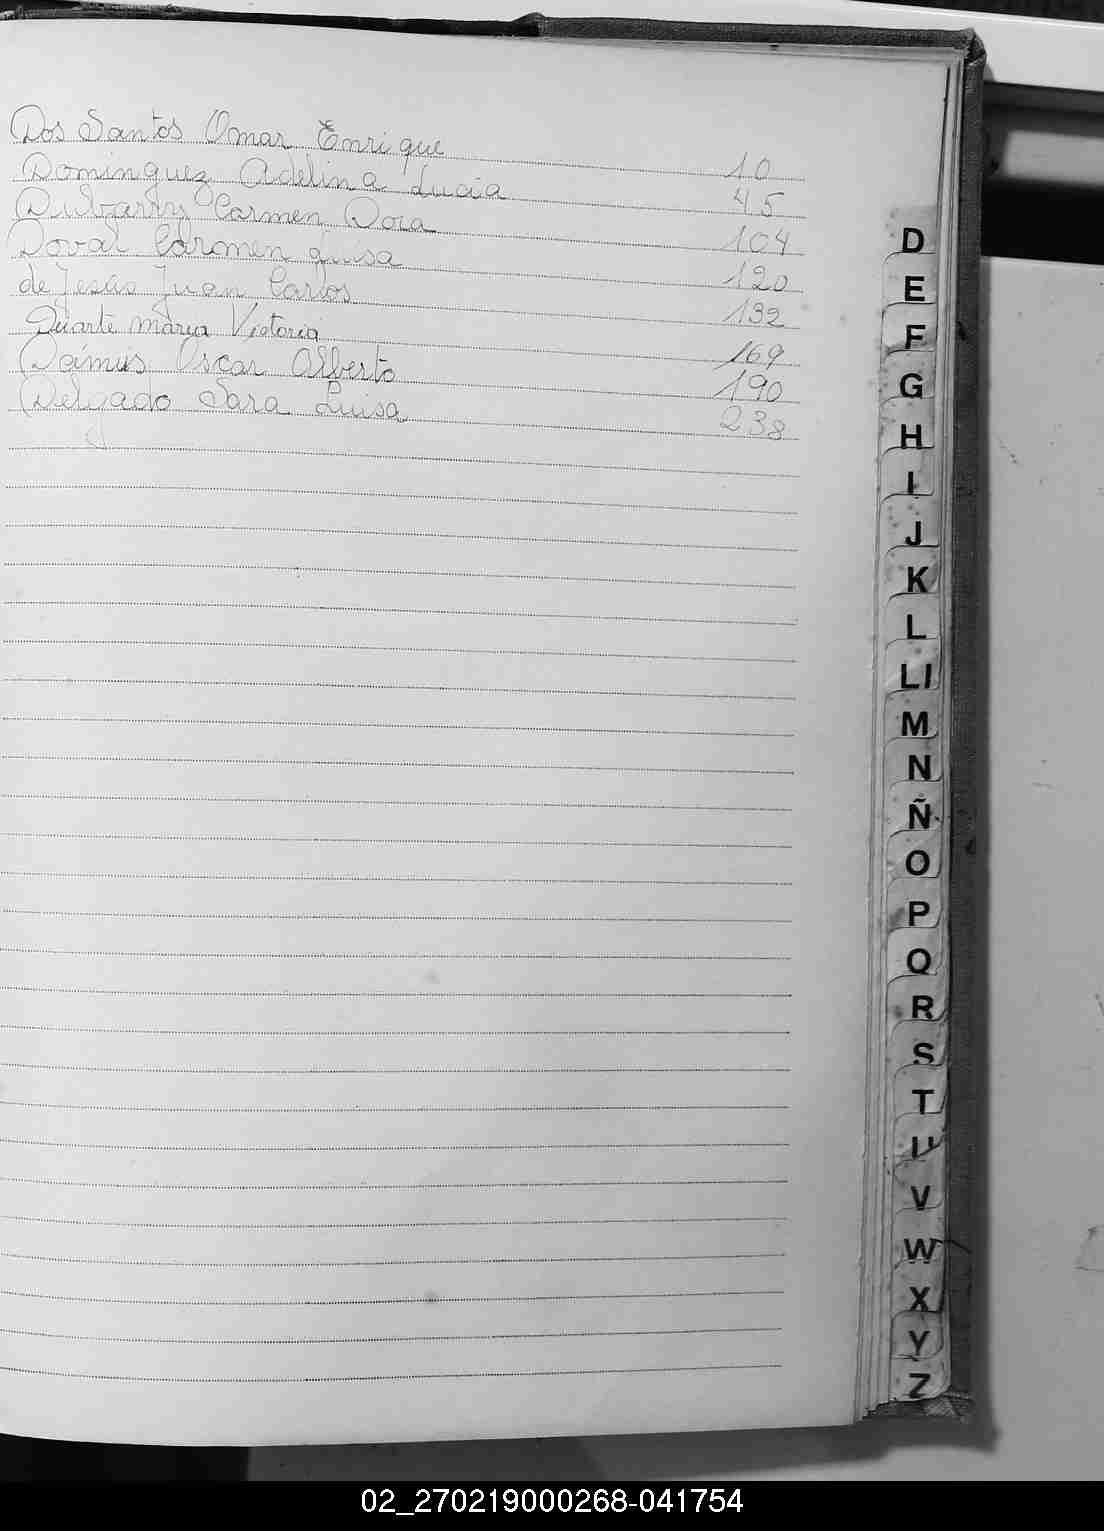 Dos Santos Omar Enrique 10
Dominguez Adelina Lucia 45
Carmen Dora 104
Doval Carmen Luisa 120
de Jesús Juan Carlos 132
Duarte Maria Victoria 169
Oscar Alberto 190
Delgado Sara Luisa 238
D
E
F
G
H
I
J
K
L
Ll
M
N
Ñ
O
P
Q
R
S
T
U
V
W
X
Y
Z
02_270219000268-041754